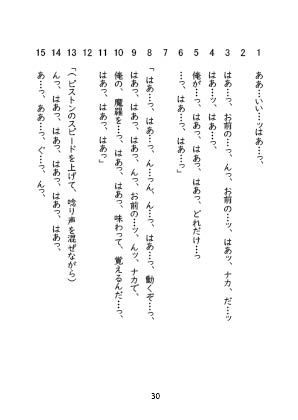 1 ああ…いい…ッはあ…っ、
2
3 はあ…っ、お前の…ん、んっ、お前の…ッ、はあッ、ナカ、だ…ッ
4 はあ…ッ、はあ…っ、
5 俺が…っ、はあっ、はあっ、はあっ、どれだけ…っ
6 …っ、はあ…っ、はあ…っ」
7
8 「はあ…っ、はあ…っ、ん…っん、ん…っ、はあ…っ、動くぞ…っ、
9 はあっ、はあっ、はあっ、んっ、お前の…ッ、んッ、ナカで、
10 俺の、魔羅を…っ、はあっ、はあっ、味わって、覚えるんだ…っ、
11 はあっ、はあっ、はあっ」
12
13 「(ピストンのスピードを上げて、唸り声を混ぜながら)
14 んっ、はあっ、はあっ、はあっ、はあっ、はあっ、
15 あ…っ、ああ…っ、ぐ…っ、んっ、
30